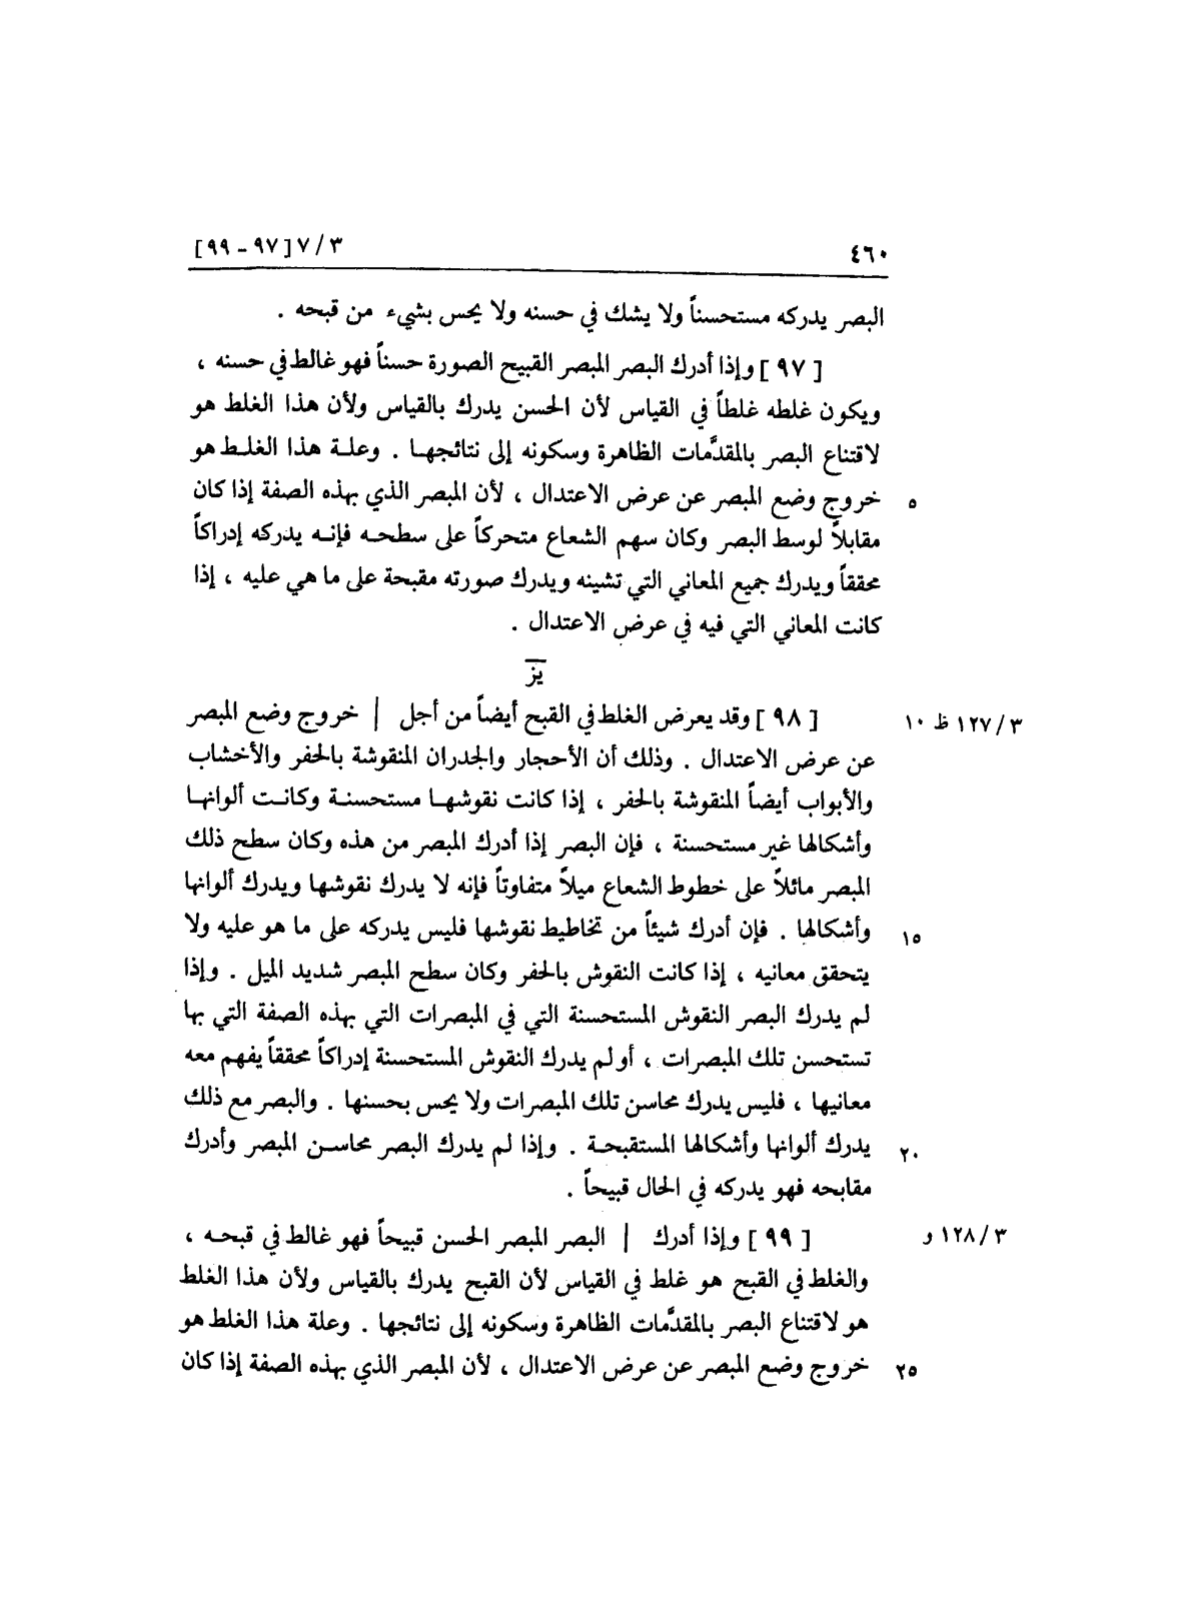 ٤٦٠
٣ / ٧ [٩٧ - ٩٩]
البصر يدركه مستحسناً ولا يشك في حسنه ولا يحس بشيء من قبحه .
[ ٩٧ ] وإذا أدرك البصر المبصر القبيح الصورة حسناً فهو غالط في حسنه ،
ويكون غلطه غلطاً في القياس لأن الحسن يدرك بالقياس ولأن هذا الغلط هو
لاقتناع البصر بالمقدَّمات الظاهرة وسكونه إلى نتائجها . وعلة هذا الغلط هو
٥ خروج وضع المبصر عن عرض الاعتدال ، لأن المبصر الذي بهذه الصفة إذا كان
مقابلاً لوسط البصر وكان سهم الشعاع متحركاً على سطحه فإنه يدركه إدراكاً
محققاً ويدرك جميع المعاني التي تشينه ويدرك صورته مقبحة على ما هي عليه ، إذا
كانت المعاني التي فيه في عرض الاعتدال .
يز
٣ / ١٢٧ ظ ١٠ [ ٩٨ ] وقد يعرض الغلط في القبح أيضاً من أجل | خروج وضع المبصر
عن عرض الاعتدال . وذلك أن الأحجار والجدران المنقوشة بالحفر والأخشاب
والأبواب أيضاً المنقوشة بالحفر ، إذا كانت نقوشها مستحسنة وكانت ألوانها
وأشكالها غير مستحسنة ، فإن البصر إذا أدرك المبصر من هذه وكان سطح ذلك
المبصر مائلاً على خطوط الشعاع ميلاً متفاوتاً فإنه لا يدرك نقوشها ويدرك ألوانها
١٥ وأشكالها . فإن أدرك شيئاً من تخاطيط نقوشها فليس يدركه على ما هو عليه ولا
يتحقق معانيه ، إذا كانت النقوش بالحفر وكان سطح المبصر شديد الميل . وإذا
لم يدرك البصر النقوش المستحسنة التي في المبصرات التي بهذه الصفة التي بها
تستحسن تلك المبصرات ، أو لم يدرك النقوش المستحسنة إدراكاً محققاً يفهم معه
معانيها ، فليس يدرك محاسن تلك المبصرات ولا يحس بحسنها . والبصر مع ذلك
٢٠ يدرك ألوانها وأشكالها المستقبحة . وإذا لم يدرك البصر محاسن المبصر وأدرك
مقابحه فهو يدركه في الحال قبيحاً .
٣ / ١٢٨ و [ ٩٩ ] وإذا أدرك | البصر المبصر الحسن قبيحاً فهو غالط في قبحه ،
والغلط في القبح هو غلط في القياس لأن القبح يدرك بالقياس ولأن هذا الغلط
هو لاقتناع البصر بالمقدَّمات الظاهرة وسكونه إلى نتائجها . وعلة هذا الغلط هو
٢٥ خروج وضع المبصر عن عرض الاعتدال ، لأن المبصر الذي بهذه الصفة إذا كان